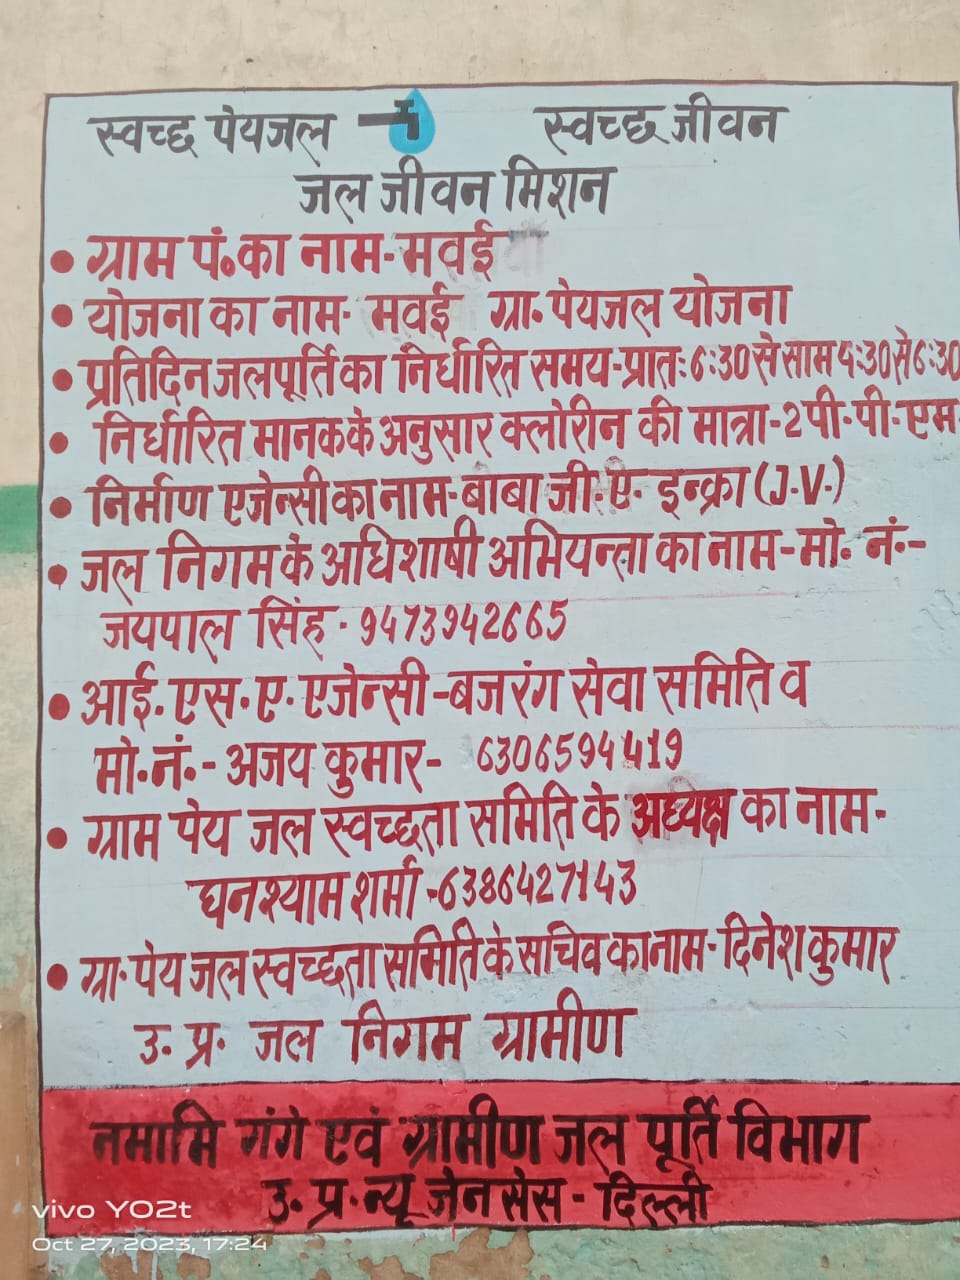 स्वच्छ पेयजल स्वच्छ जीवन
जल जीवन मिशन
• ग्राम पं॰ का नाम- मवई
• योजना का नाम- मवई ग्रा॰ पेयजल योजना
• प्रतिदिन जलपूर्ति का निर्धारित समय-प्रातः 6:30 से साम 4:30 से 6:30
• निर्धारित मानक के अनुसार क्लोरीन की मात्रा-2 पी॰पी॰एम॰
• निर्माण एजेन्सी का नाम-बाबा जी॰ए॰ इन्फ्रा (J.V.)
• जल निगम के अधिशाषी अभियन्ता का नाम-मो॰ नं॰-
जयपाल सिंह - 9473942665
• आई॰एस॰ए॰ एजेन्सी-बजरंग सेवा समिति व
मो॰नं॰- अजय कुमार- 6306594419
• ग्राम पेय जल स्वच्छता समिति के अध्यक्ष का नाम-
घनश्याम शर्मा-6386427143
• ग्रा॰ पेय जल स्वच्छता समिति के सचिव का नाम-दिनेश कुमार
उ॰ प्र॰ जल निगम ग्रामीण
नमामि गंगे एवं ग्रामीण जल पूर्ति विभाग
उ॰ प्र॰ न्यू जेनसेस - दिल्ली
vivo Y02t
Oct 27, 2023, 17:24